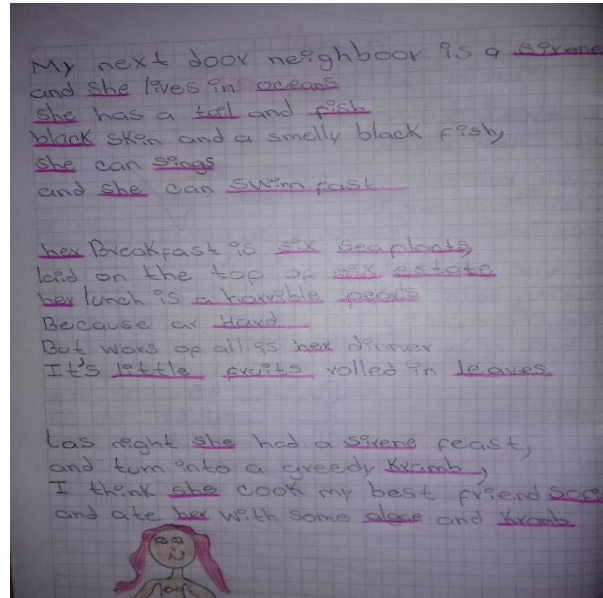 My next door neighboor is a sirene
and she lives in oceans
she has a tail and fish
black skin and a smelly black fish,
she can sings
and she can swim fast
her Breakfast is six seaplants,
laid on the top of six estate
her lunch is a horrible pearls
Because ar Hard
But wors of all is her dinner
It's little fruits rolled in leaves
Las night she had a sirene feast,
and turn into a greedy Kramb,
I think she cook my best friend
and ate her with some algae and Kramb